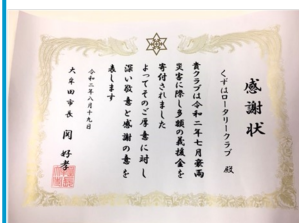 感謝状
くずはロータリークラブ 殿
貴クラブは令和二年七月豪雨
災害に際し多額の義援金を
寄付されました
よってそのご厚意に対し
深い敬意と感謝の意を
表します
令和二年八月十九日
大牟田市長 関 好孝